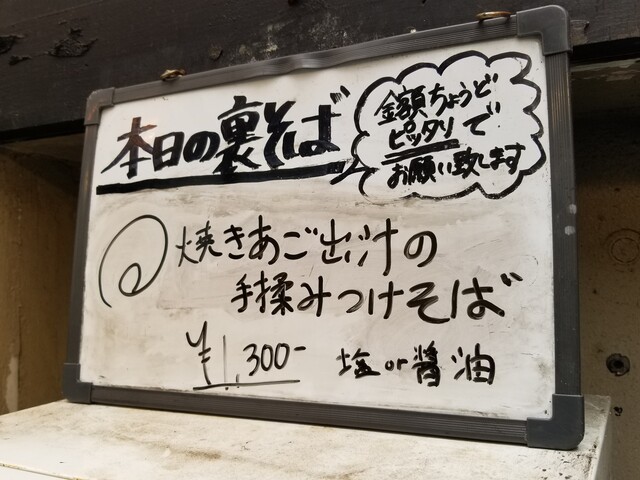 本日の裏そば
金額ちょうど
ピッタリで
お願い致します
焼きあご出汁の
手揉みつけそば
¥1,300-
塩or醤油